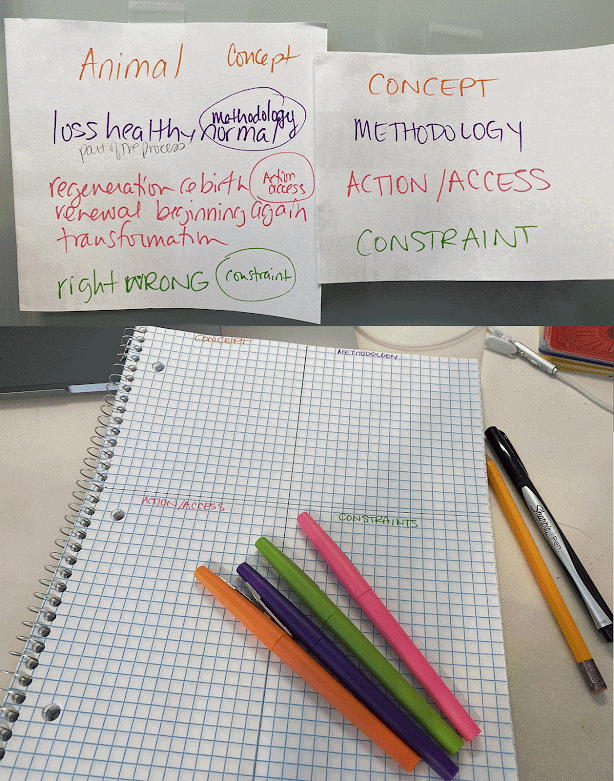 Animal
Concept
loss healthy normal
methodology
part of the process
regeneration rebirth
Action
access
renewal beginning again
transformation
right WRONG
constraint
CONCEPT
METHODOLOGY
ACTION/ACCESS
CONSTRAINT
CONCEPT
METHODOLOGY
ACTION/ACCESS
CONSTRAINTS
Sharpie